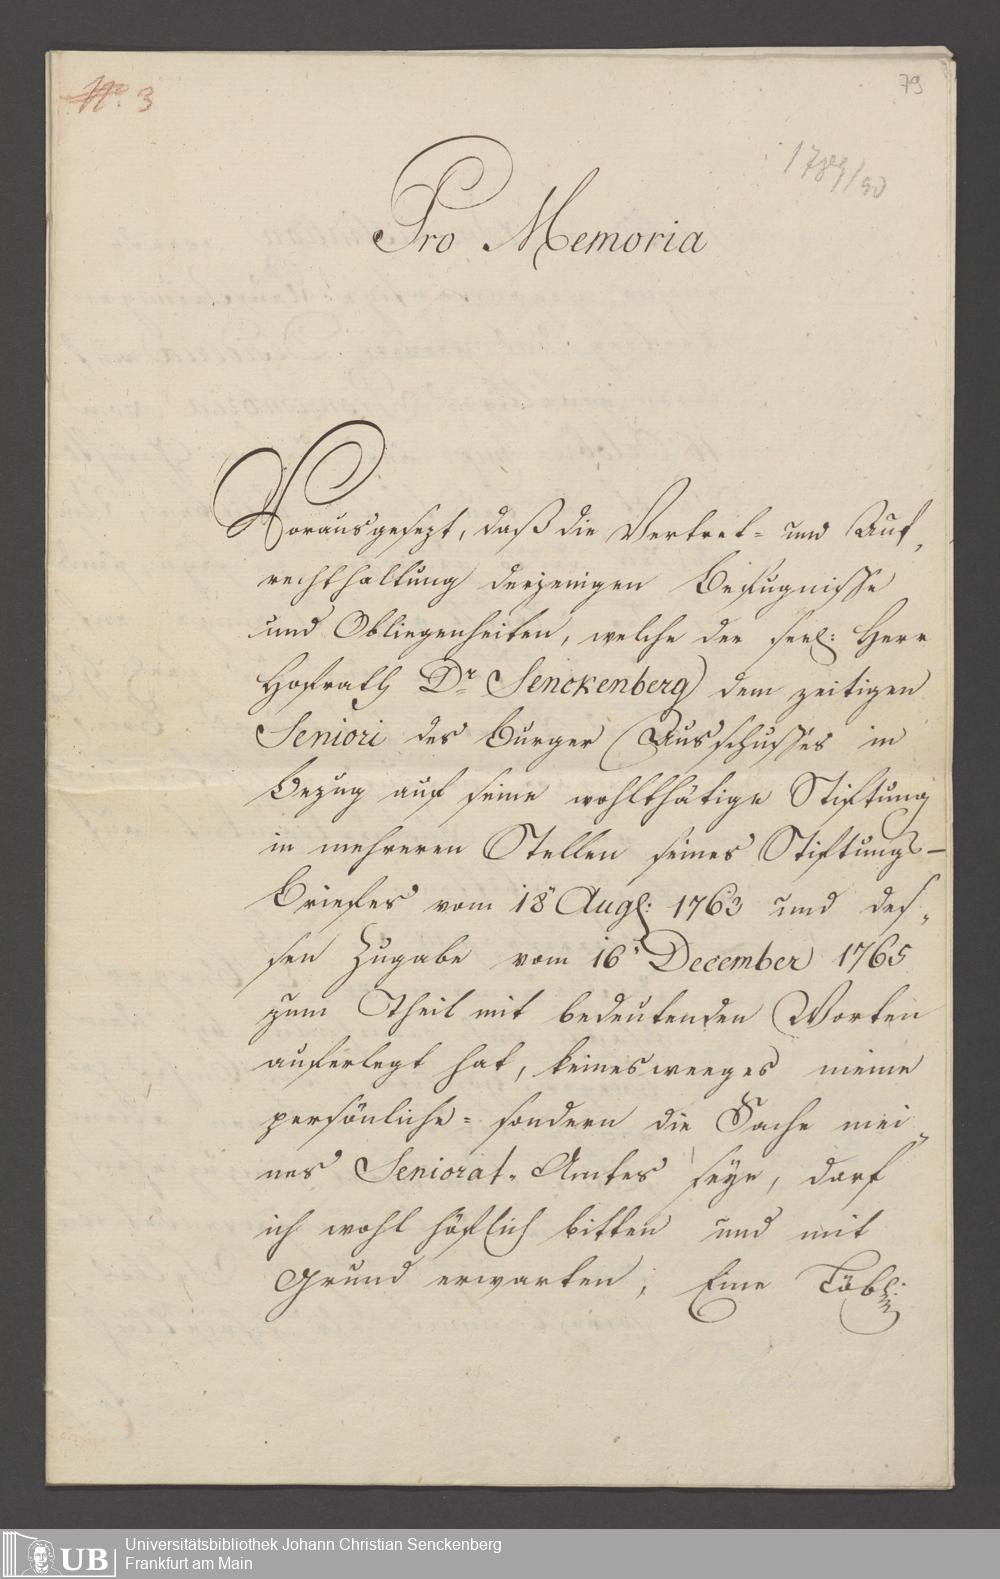 No. 3
79
1789/90
Pro Memoria
Vorausgesezt, daß die Vertret- und Auf-
rechthaltung derjenigen Befugnisse
und Obliegenheiten, welche der seel: Herr
Hofrath Dr. Senckenberg dem zeitigen
Seniori des Burger Ausschusses in
Bezug auf seine wohlthätige Stiftung
in mehreren Stellen seines Stiftungs-
Briefes vom 18 Aug: 1763 und des-
sen Zugabe vom 16 December 1765
zum Theil mit bedeutenden Worten
auferlegt hat, keinesweeges meine
persönliche- sondern die Sache mei-
nes Seniorat-Amtes seye, darf
ich wohl höflich bitten und mit
Grund erwarten, Eine Löbl:
UB
Universitätsbibliothek Johann Christian Senckenberg
Frankfurt am Main